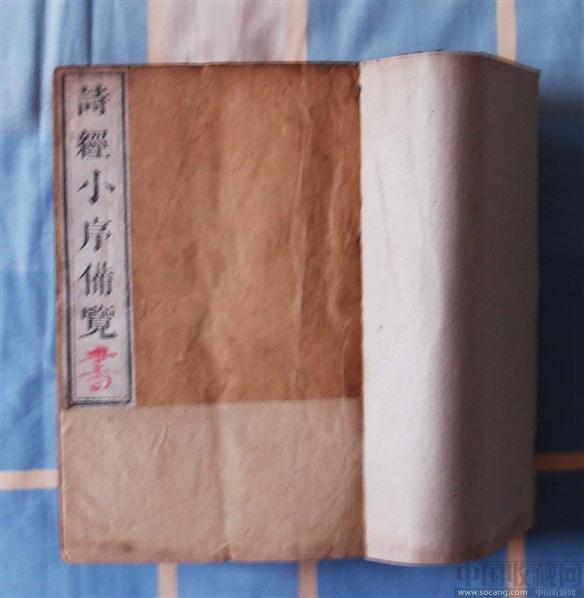 詩經小序備覽
書
中国收藏网
www.socang.com 中国收藏网